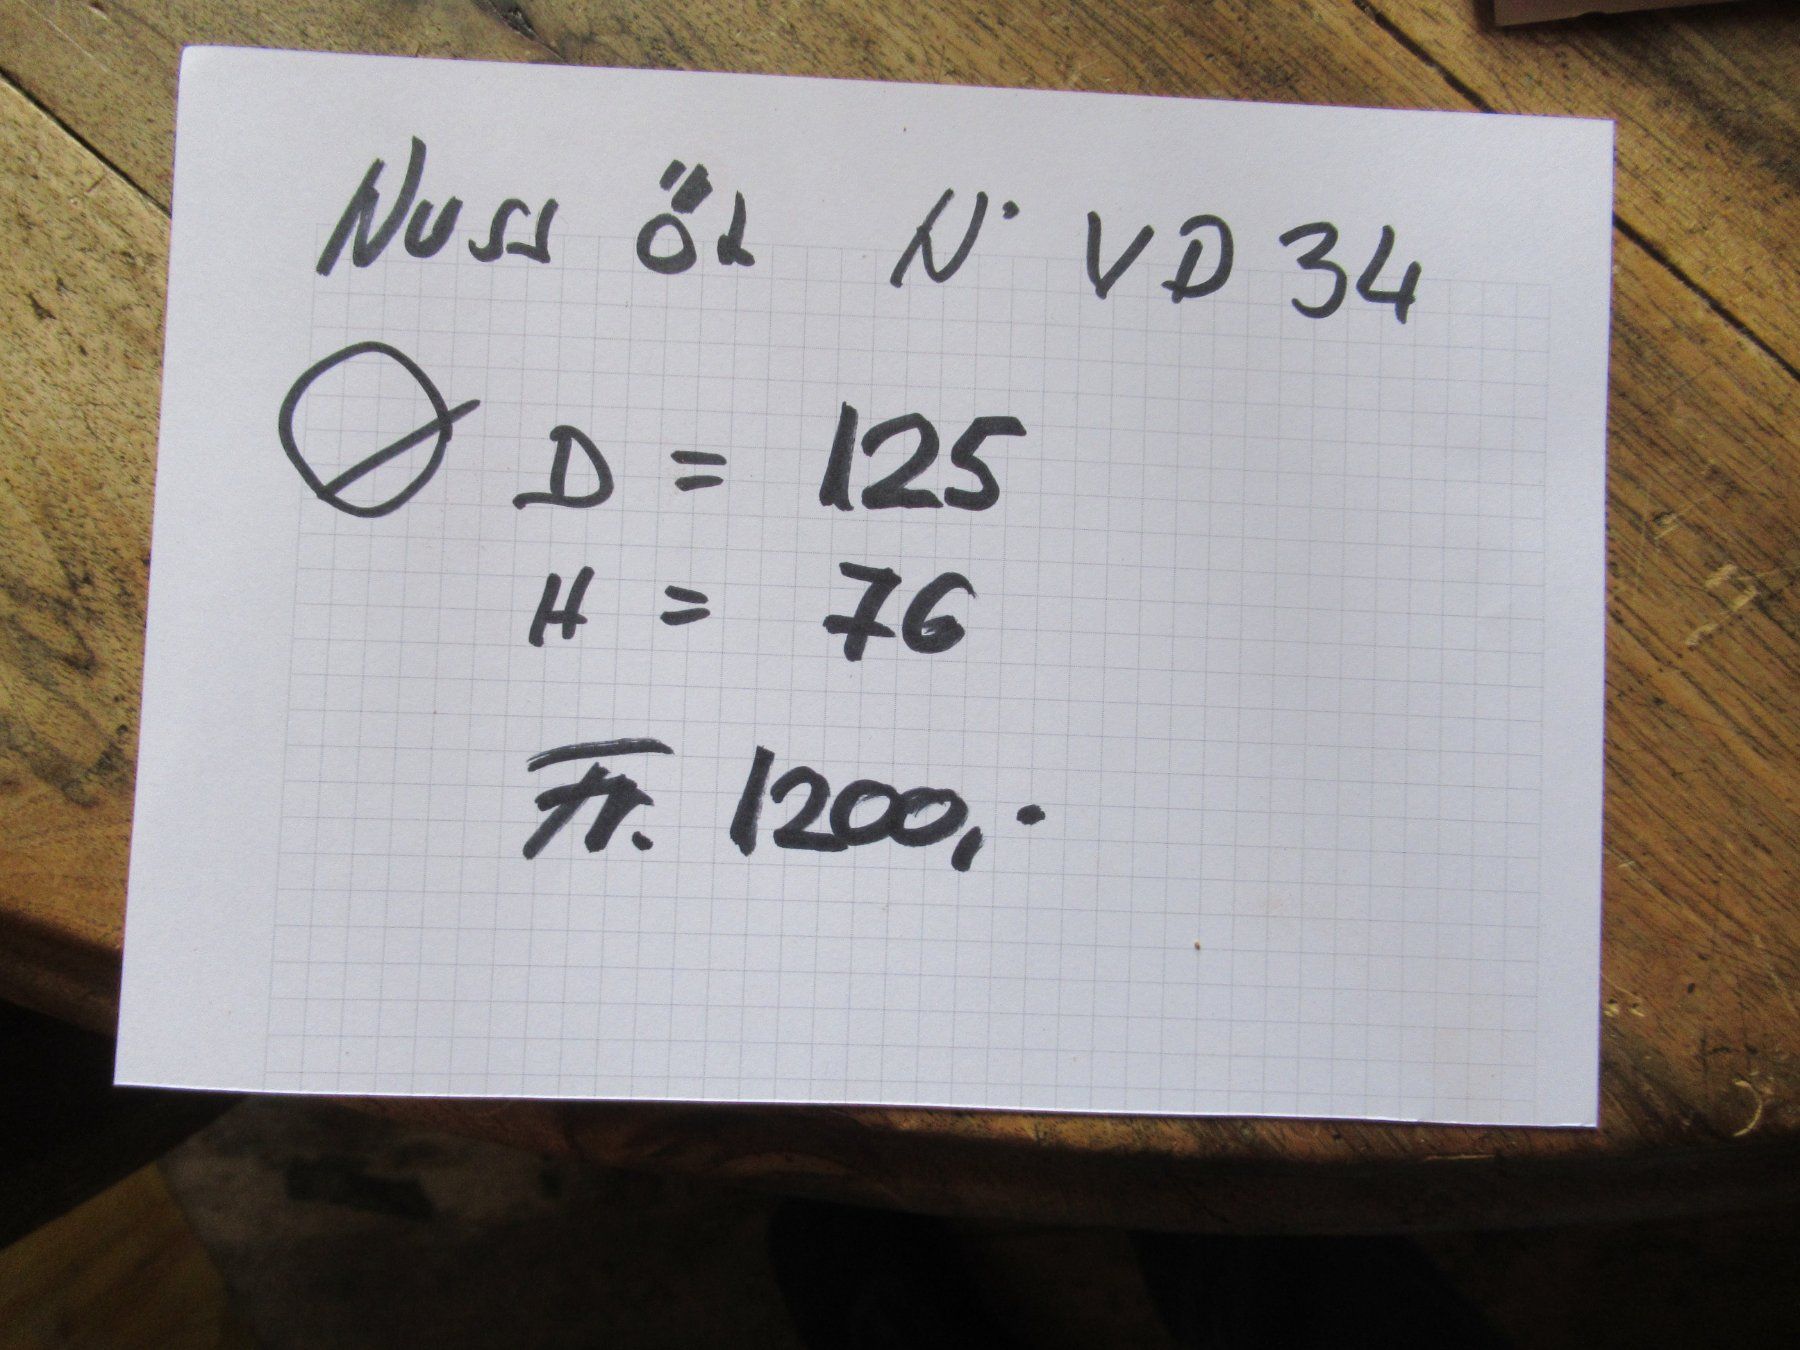 Nuss Öl N. VD 34
Ø D = 125
H = 76
Fr. 1200,-